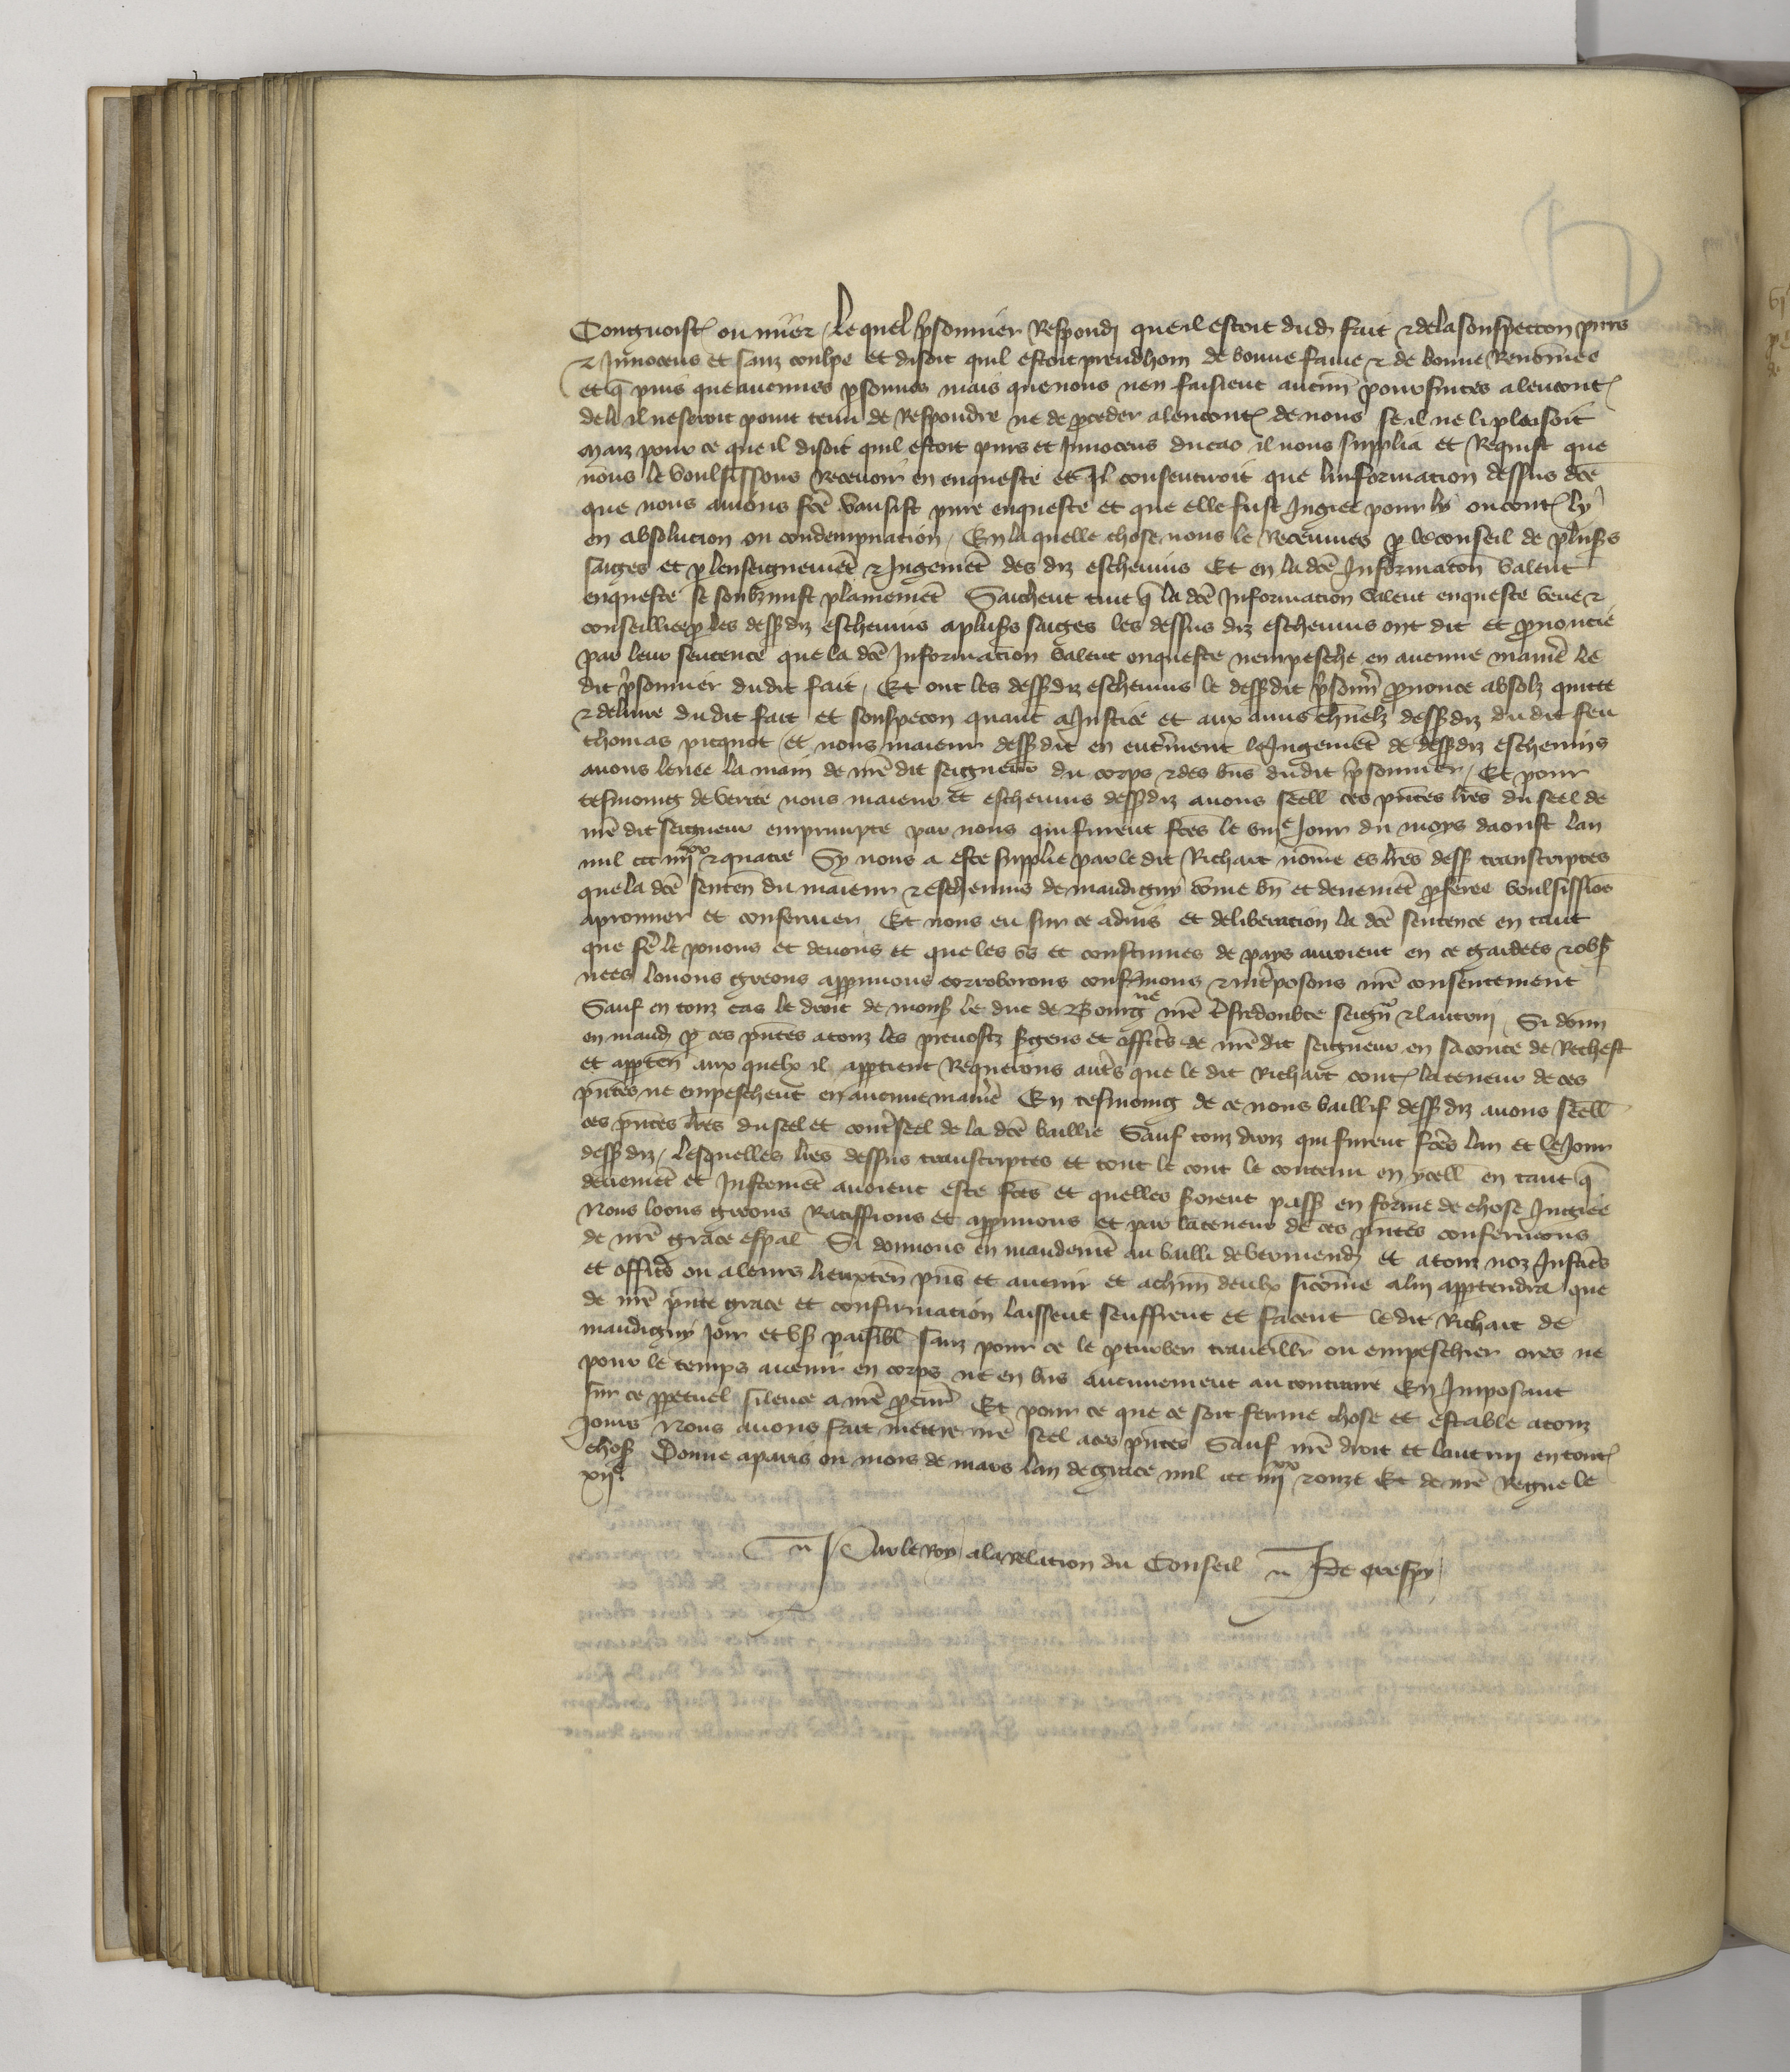 Congnoist ou nier / Lequel p̃sonnier Respondi que il estoit dud fait ⁊ dela souspeccon purs
⁊ Innocens et sanz coulpe et disoit quil estoit preudhom de bonne fame ⁊ de bonne Renõmee
et q̃ puis que aucunes p̃sonnes mais que nous nen faisient aucun poursuites alencont̃
de li il nestoit point tenu de Respondre ne de p̃ceder alencont̃ de nous se il ne li plaisoit
Maiz pour ce que il disoit quil estoit purs et Innocens du cas il nous supplia et Requist que
nous le voulsissons Recevoir en enqueste et Il consentiroit que linformation dessus dcẽ
que nous avions fcẽ vausist pure enqueste et que elle fust Jugiee pour ly ou cont̃ ly
en absolucion ou condempnacion / En la quelle chose nous le Receumes p̃ le conseil de plus̃s
saiges et p̃ lenseignemẽt ⁊ Jugemẽt des diz eschevins Et en la dcẽ Informacõn valent
enqueste se soubzmist plainemẽt Saichent tuit q̃ la dcẽ Information valent enqueste veue ⁊
conseilliee p̃ les dess̃diz eschevins a plus̃s saiges les dessus diz eschevins ont dit et p̃noncie
par leur sentence que la dcẽ Information valent enqueste nempesche en aucune manie͂ le
dit p̃sonnier dudit fait / Et ont les dess̃diz eschevins le dess̃dit p̃sonñ p̃nonce absolz quitte
⁊ delivre dudit fait et souspecon quant a Justice et aux amis charnelz dess̃diz du dit feu
thomas picquot / et nous maieur dess̃dit en entẽrinent le Jugemẽt de dess̃diz eschevins
avons levee la main de nrẽ dit seigneur du corps ⁊ des bñs dudit p̃sonnier / Et pour
tesmoing de verite nous maieur et eschevins dess̃diz avons seell ces p̃ntes lrẽs du seel de
nrẽ dit seigneur emprunpte par nous qui furent fcẽs le viiie Jour du moys daoust lan
mil ccc iiiixx ⁊ quatre Sy nous a este supplie par le dit Richart nõme es lrẽs dess̃ transcriptes
que la dcẽ sentenc̃ du maieur ⁊ eschevins de maudigny cõme bñ et deuemẽt p̃feree voulsissions
aprouver et confermer Et nous eu sur ce advis et deliberacion la dcẽ sentence en tant
que fẽ le povons et devons et que les us et coustumes de pays auroient en ce gardees ⁊ obs̃
vees louons greons app̃uvons corroborons conf̃mons ⁊ int̃posons nrẽ consentement
Sauf en touz cas le droit de mons̃ le duc de Bourgne nrẽ t̃sredoubte seign̄ ⁊ lautruy Si donn
en mand p̃ ces p̃ntes a touz les prevostz s̃gens et officẽs de nrẽ dit seigneur en sa conte de Rethest
et app̃ten̄ aux quelx il app̃tient Requerons aut̃s que le dit Richart cont̃ la teneur de ces
p̃ntes ne empeschent en aucune manie͂ En tesmoing de ce nous baillif dess̃diz avons seell
ces p̃ntes lrẽs du seel et contr̃seel de la dcẽ baillie Sauf touz droiz qui furent fcẽs lan et le Jour
dess̃ diz / Lesquelles lrẽs dessus transcriptes et tout le cont le contenu en ycell en tant q̃
deuemẽt et Justemẽt avoient este fcẽs et quelles seroient pass̃ en forme de chose Jugiee
Nous loons greons Ratiffions et app̃uvons et par la teneur de ces p̃ntes confermons
de nrẽ grace esp̃al Si donnons en mandemẽt au bailli de vermend et a touz noz Justicẽs
et officẽs ou a leurs lieuxten̄ p̃ns et avenir et a chũn deulx si cõme a luy app̃tendra que
de nrẽ p̃nte grace et confirmacion laissent seuffrent et facent le dit Richart de
maudigny Joir et us̃ paisibl sanz pour ce le p̃turber travaillr̃ ou empeschier ores ne
pour le temps avenir en corps ne en bñs aucunement au contraire En Imposant
sur ce p̃petuel silence a nrẽ p̃cur̃ Et pour ce que ce soit ferme chose et estable a touz
Jours Nous avons fait mettre nrẽ seel a ces p̃ntes Sauf nrẽ droit et lautruy en tout̃
chos̃ Donne a paris ou mois de mars lan de grace mil ccc iiiixx ⁊ onze Et de nrẽ Regne le
xiie
Par le Roy / a la Relation du Conseil De crespy